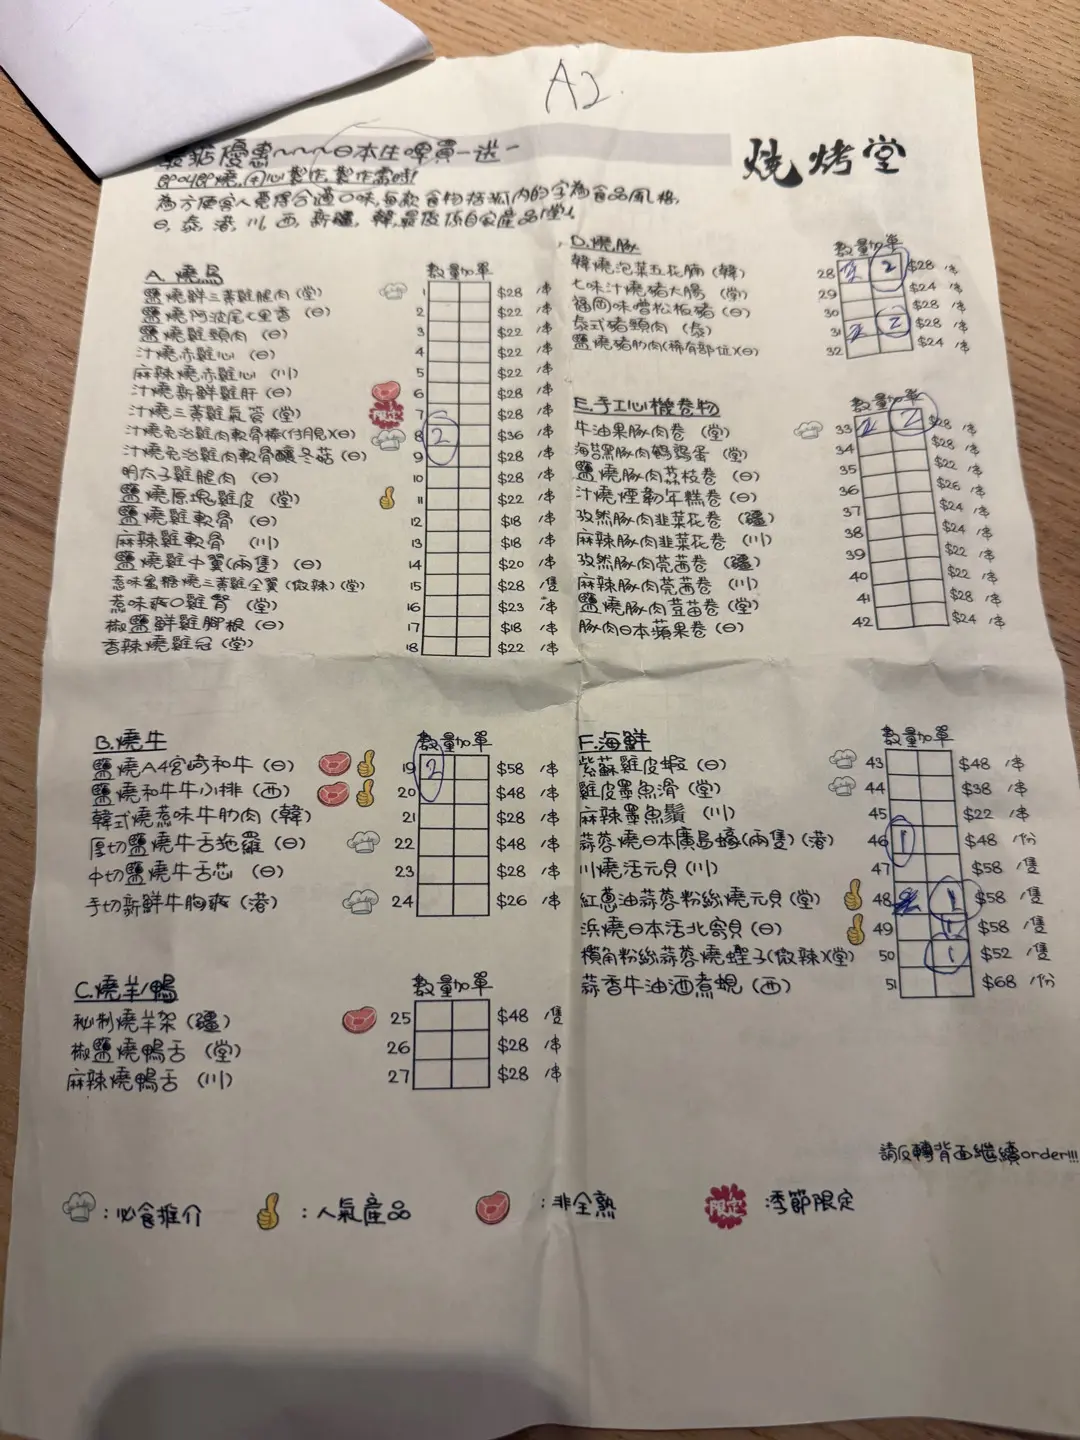 A2.
燒烤堂
優惠~~~日本生啤買一送一
即叫即燒,用心製作,製作需時!
為方便客人覓得合適口味,每款食物括弧內的字為食品風格,
日,泰,港,川,西,新疆,韓,最後係自家產品(堂)。
A.燒鳥 數量加單
鹽燒鮮三黃雞腿肉(堂) 1 $28 /串
鹽燒阿波尾七里香(日) 2 $22 /串
鹽燒雞頸肉(日) 3 $22 /串
汁燒赤雞心(日) 4 $22 /串
麻辣燒赤雞心(川) 5 $22 /串
汁燒新鮮雞肝(日) 6 $28 /串
汁燒三黃雞氣管(堂) 限定 7 $28 /串
汁燒免治雞肉軟骨棒(付月見)(日) 8 2 $36 /串
汁燒免治雞肉軟骨釀冬菇(日) 9 $28 /串
明太子雞腿肉(日) 10 $28 /串
鹽燒原塊雞皮(堂) 11 $22 /串
鹽燒雞軟骨(日) 12 $18 /串
麻辣雞軟骨(川) 13 $18 /串
鹽燒雞中翼(兩隻)(日) 14 $20 /串
惹味蜜糖燒三黃雞全翼(微辣)(堂) 15 $28 /隻
惹味爽口雞腎(堂) 16 $23 /串
椒鹽鮮雞腳根(日) 17 $18 /串
香辣燒雞冠(堂) 18 $22 /串
B.燒牛 數量加單
鹽燒A4宮崎和牛(日) 19 2 $58 /串
鹽燒和牛牛小排(西) 20 $48 /串
韓式燒惹味牛肋肉(韓) 21 $28 /串
厚切鹽燒牛舌拖羅(日) 22 $48 /串
中切鹽燒牛舌芯(日) 23 $28 /串
手切新鮮牛胸爽(港) 24 $26 /串
C.燒羊/鴨 數量加單
秘制燒羊架(疆) 25 $48 /隻
椒鹽燒鴨舌(堂) 26 $28 /串
麻辣燒鴨舌(川) 27 $28 /串
D.燒豚 數量加單
韓燒泡菜五花腩(韓) 28 2 2 $28 /串
七味汁燒豬大腸(堂) 29 $24 /串
福岡味噌松板豬(日) 30 $28 /串
泰式豬頸肉(泰) 31 2 2 $28 /串
鹽燒豬肋肉(稀有部位)(日) 32 $24 /串
E.手工心機卷物 數量加單
牛油果豚肉卷(堂) 33 2 2 $28 /串
海苔黑豚肉鵪鶉蛋(堂) 34 $28 /串
鹽燒豚肉荔枝卷(日) 35 $22 /串
汁燒煙韌年糕卷(日) 36 $26 /串
孜然豚肉韭菜花卷(疆) 37 $24 /串
麻辣豚肉韭菜花卷(川) 38 $24 /串
孜然豚肉莞茜卷(疆) 39 $22 /串
麻辣豚肉莞茜卷(川) 40 $22 /串
鹽燒豚肉荳苗卷(堂) 41 $28 /串
豚肉日本蘋果卷(日) 42 $24 /串
F.海鮮 數量加單
紫蘇雞皮蝦(日) 43 $48 /串
雞皮墨魚滑(堂) 44 $38 /串
麻辣墨魚鬚(川) 45 $22 /串
蒜蓉燒日本廣島蠔(兩隻)(港) 46 1 $48 /份
川燒活元貝(川) 47 $58 /隻
紅蔥油蒜蓉粉絲燒元貝(堂) 48 1 $58 /隻
浜燒日本活北寄貝(日) 49 1 $58 /隻
欖角粉絲蒜蓉燒蟶子(微辣)(堂) 50 1 $52 /隻
蒜香牛油酒煮蜆(西) 51 $68 /份
請反轉背面繼續order!!!
:必食推介 :人氣產品 :非全熟 限定 :季節限定